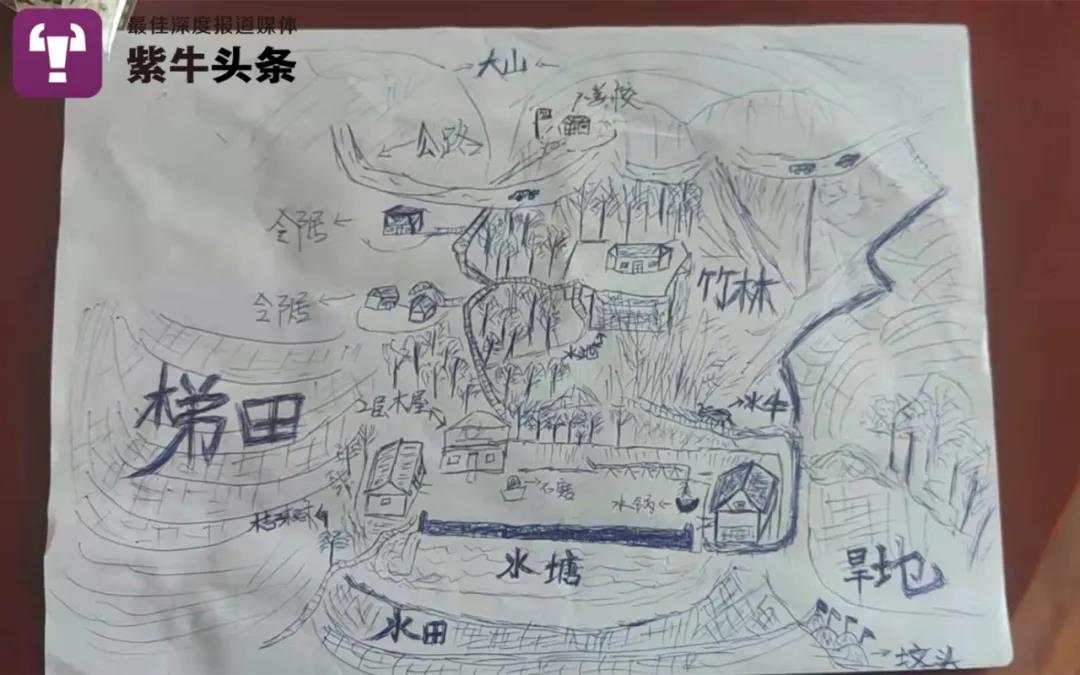 最佳深度报道媒体
紫牛头条
大山
学校
公路
竹林
水池
水牛
梯田
2层木屋
石磨
水锅
水塘
旱地
水田
坟头